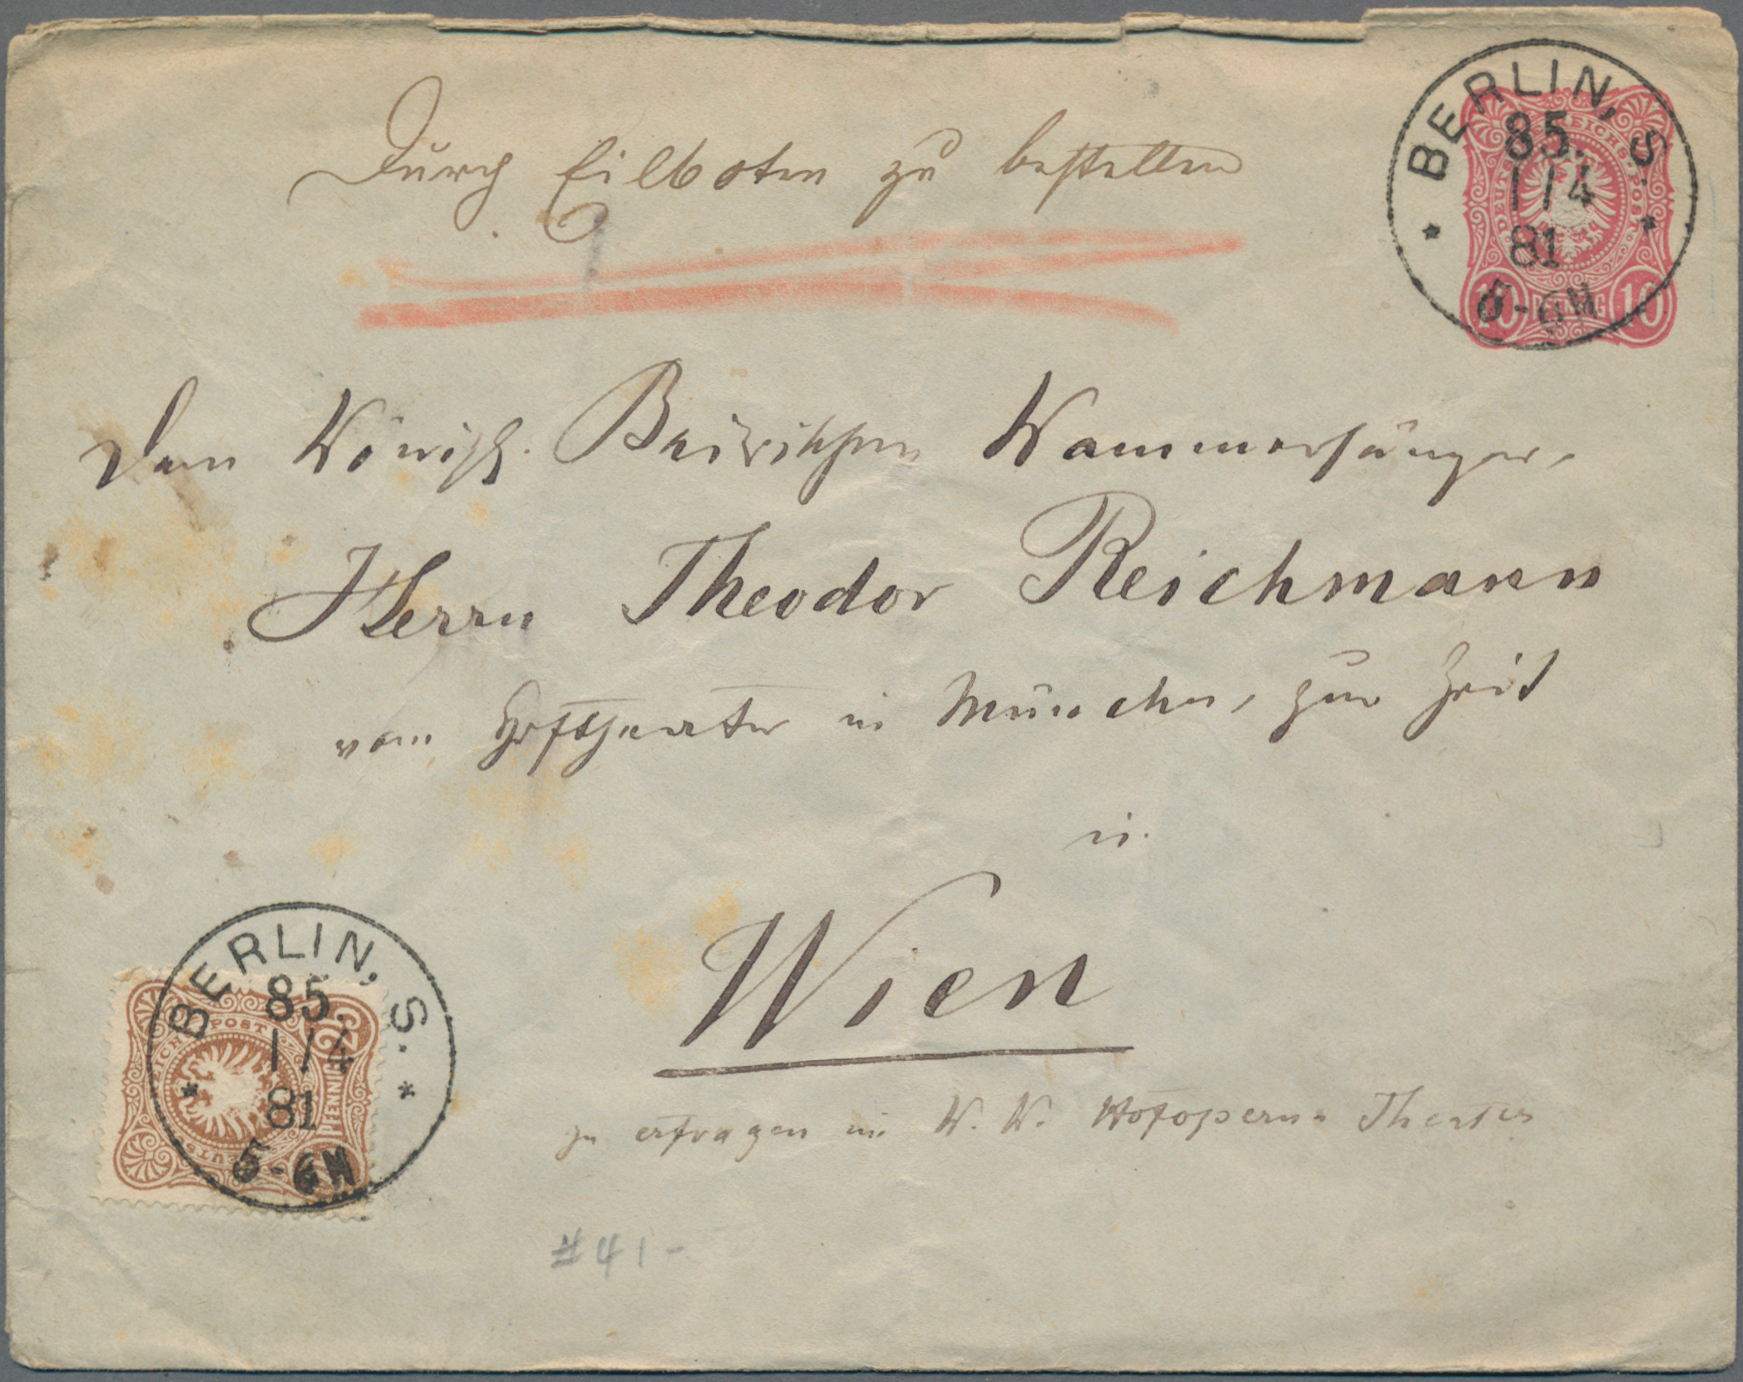 Durch Eilboten zu bestellen
BERLIN, S.
85.
1/4
81
5-6N
DEUTSCHE REICHSPOST
10 PFENNIG 10
Dem Königl. Bairischen Kammersänger,
Herrn Theodor Reichmann
vom Hoftheater in München, zur Zeit
in
Wien
zu erfragen im K. K. Hofopern-Theater
BERLIN, S.
85.
1/4
81
5-6N
DEUTSCHE REICHSPOST
25 PFENNIG
#41-